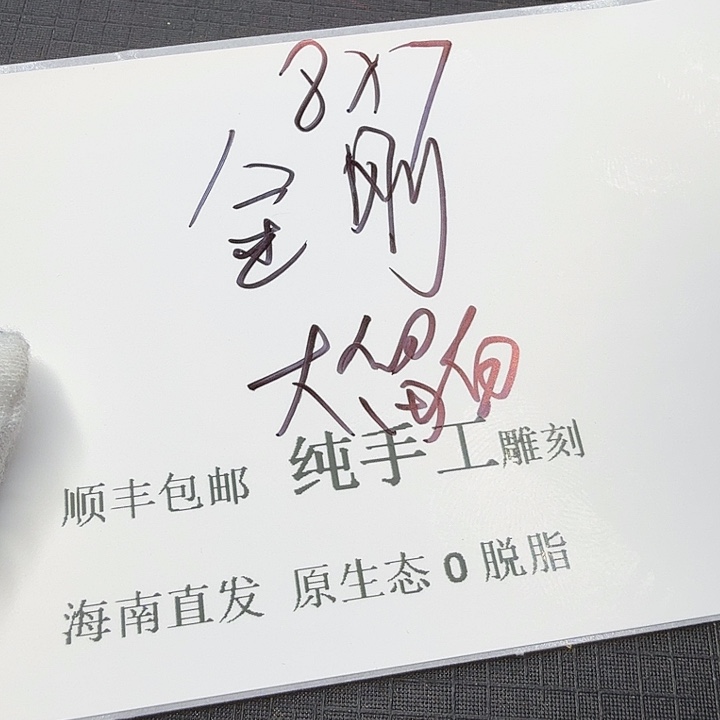 8×7
金刚
大留白
顺丰包邮 纯手工雕刻
海南直发 原生态0脱脂